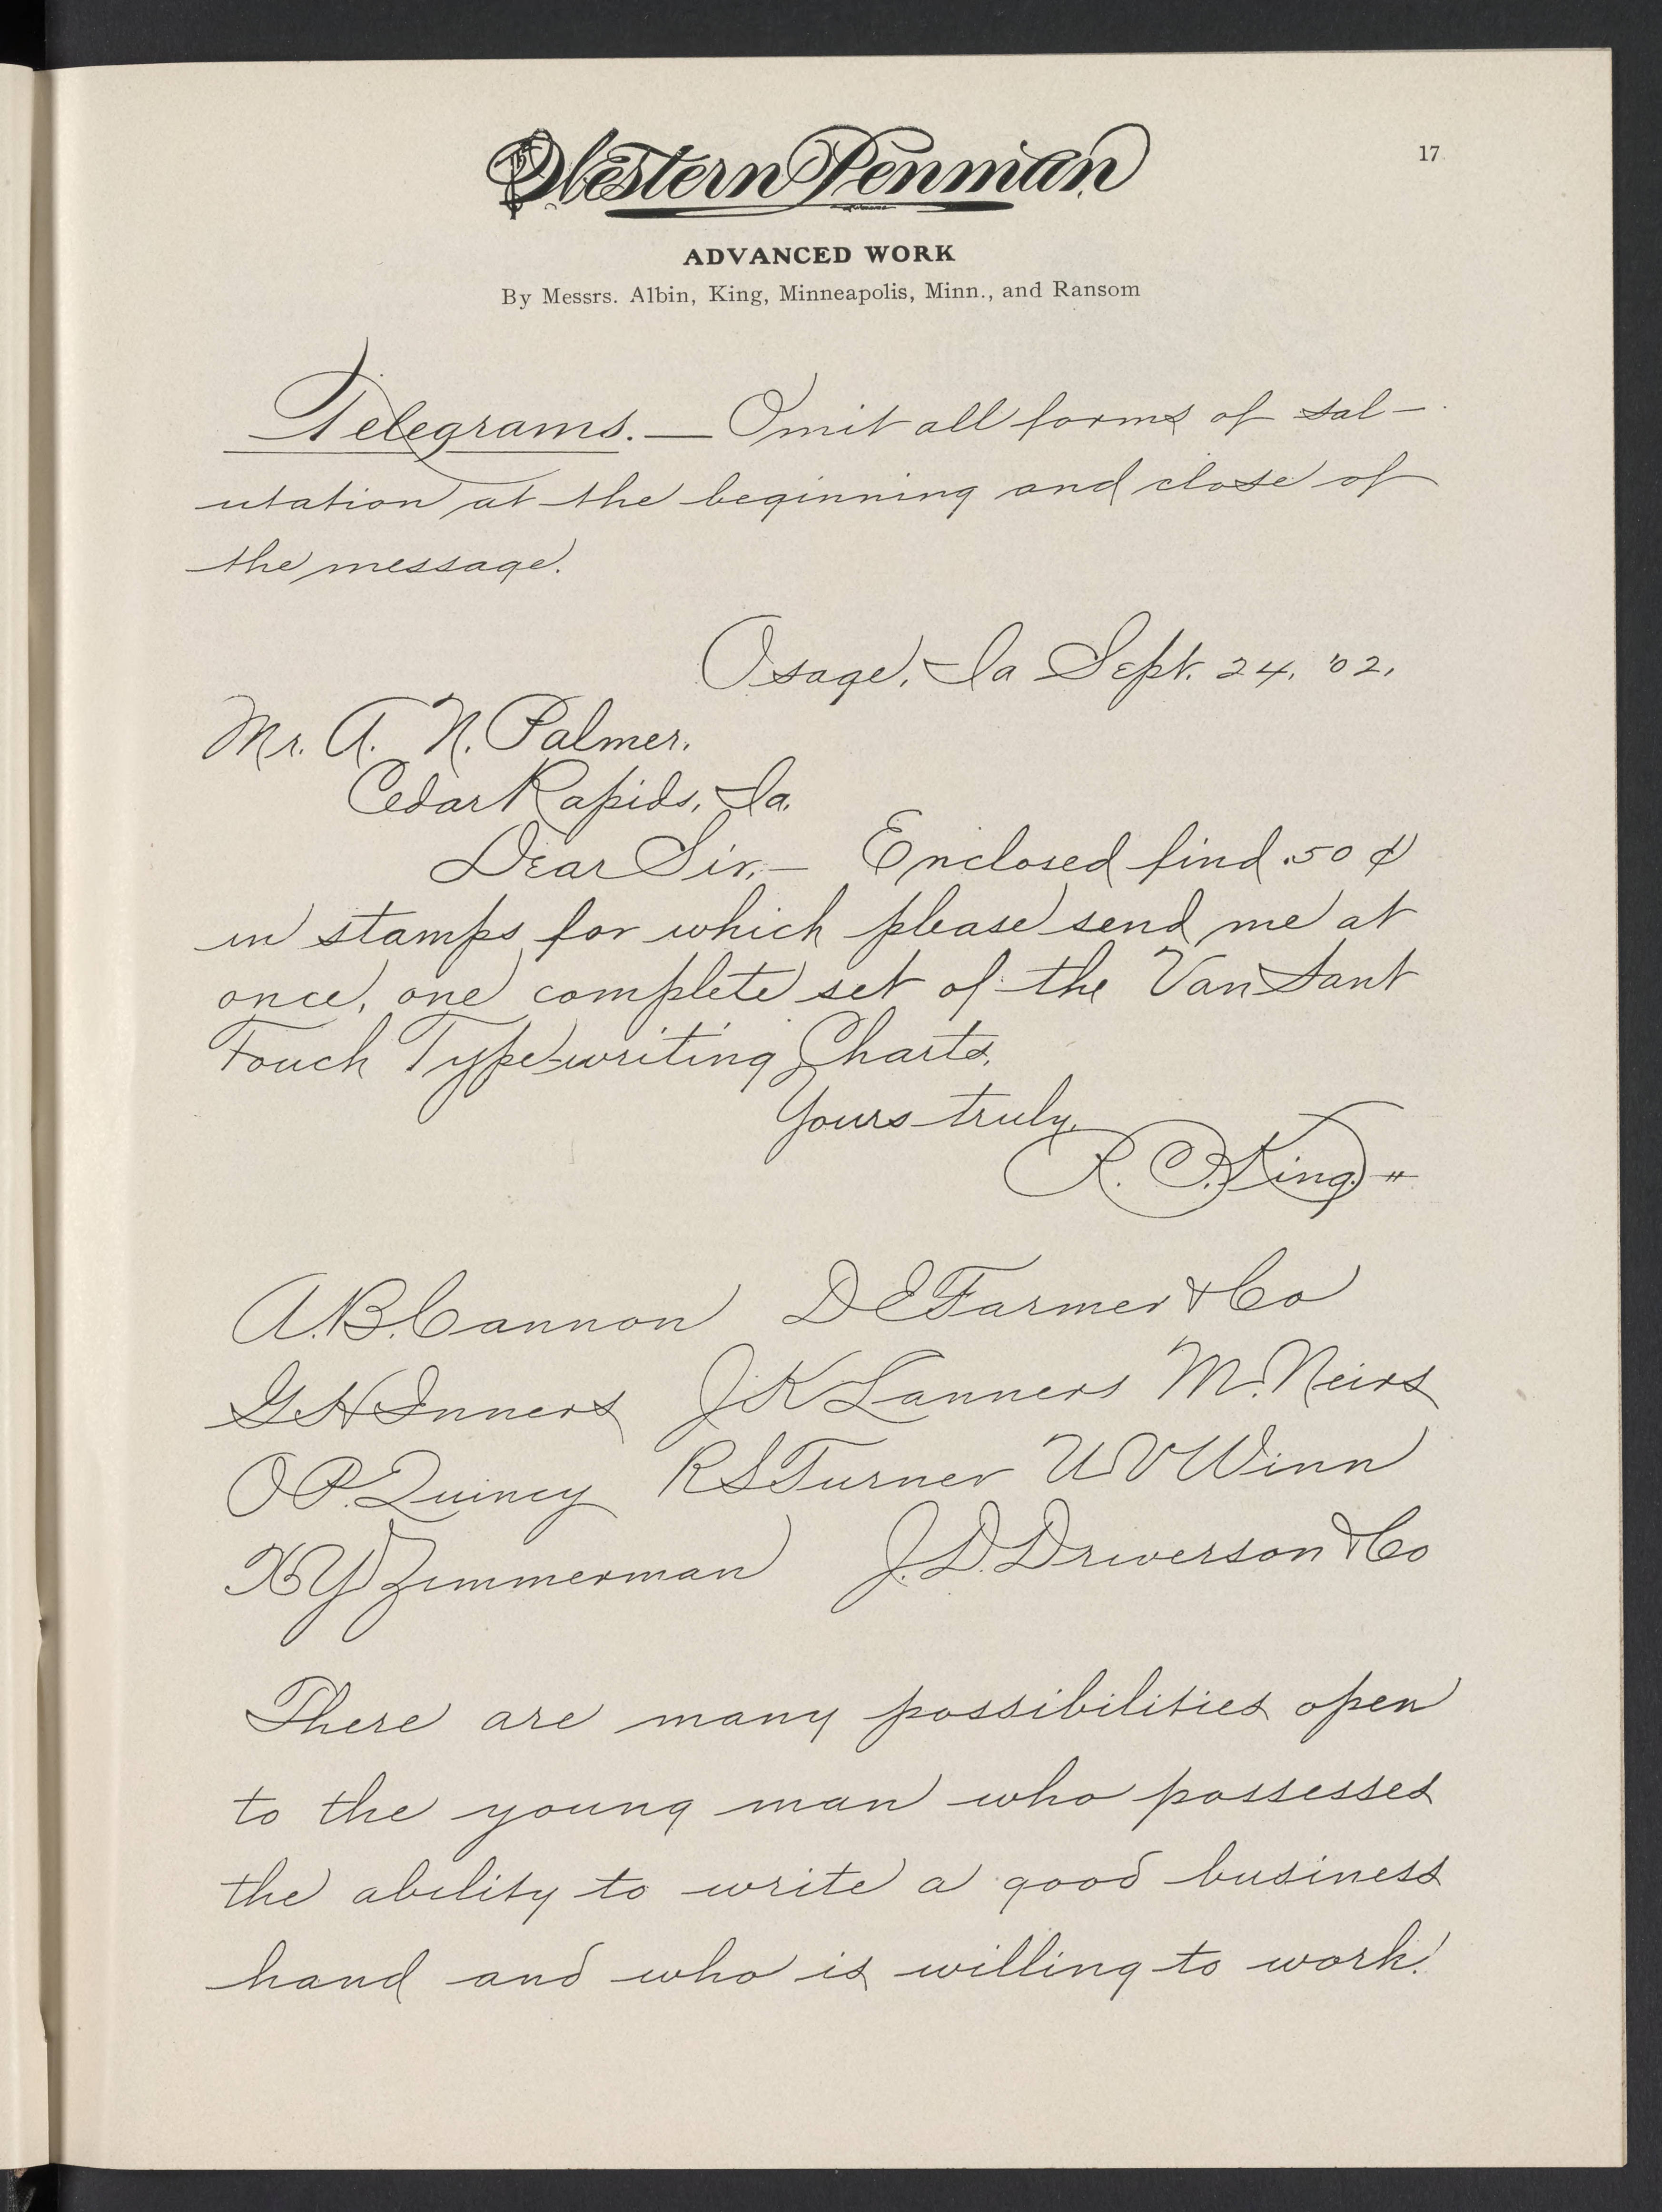 Western Penman
17
ADVANCED WORK
By Messrs. Albin, King, Minneapolis, Minn., and Ransom
Telegrams. — Omit all forms of sal-
utation at the beginning and close of
the message.
Osage, Ia Sept. 24, '02,
Mr. A. N. Palmer,
Cedar Rapids, Ia.
Dear Sir,— Enclosed find .50 ¢
in stamps for which please send me at
once, one complete set of the Van Sant
Touch Type-writing Charts.
Yours truly,
R. C. King.
A. B. Cannon D E Farmer & Co
G H Inners J K Lanners M. Neirs
O P. Quincy R S Turner U V Winn
X Y Zimmerman J. D. Driverson & Co
There are many possibilities open
to the young man who possesses
the ability to write a good business
hand and who is willing to work.